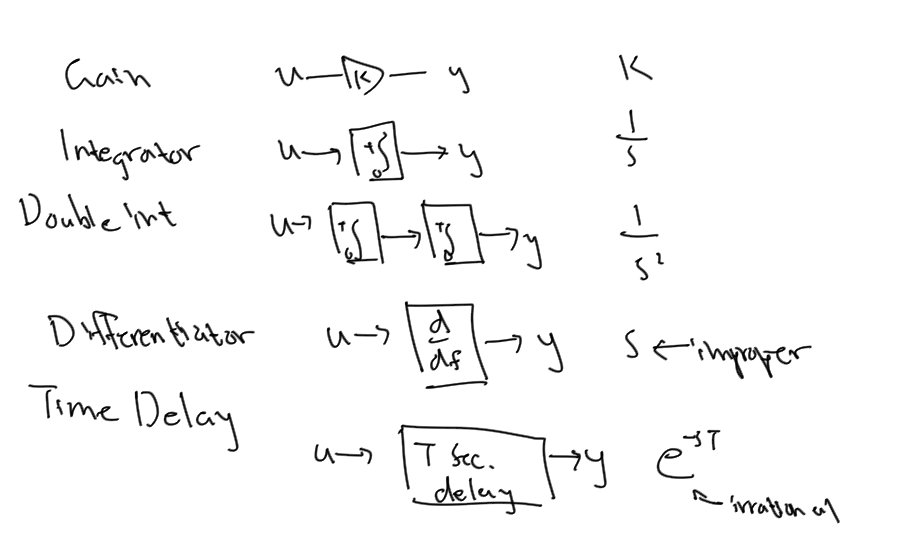 Gain u K y K
Integrator u t∫0 y 1/s
Double int u t∫0 t∫0 y 1/s²
Differentiator u d/dt y s ← improper
Time Delay
u → T sec. delay → y e^-sT
← irrational